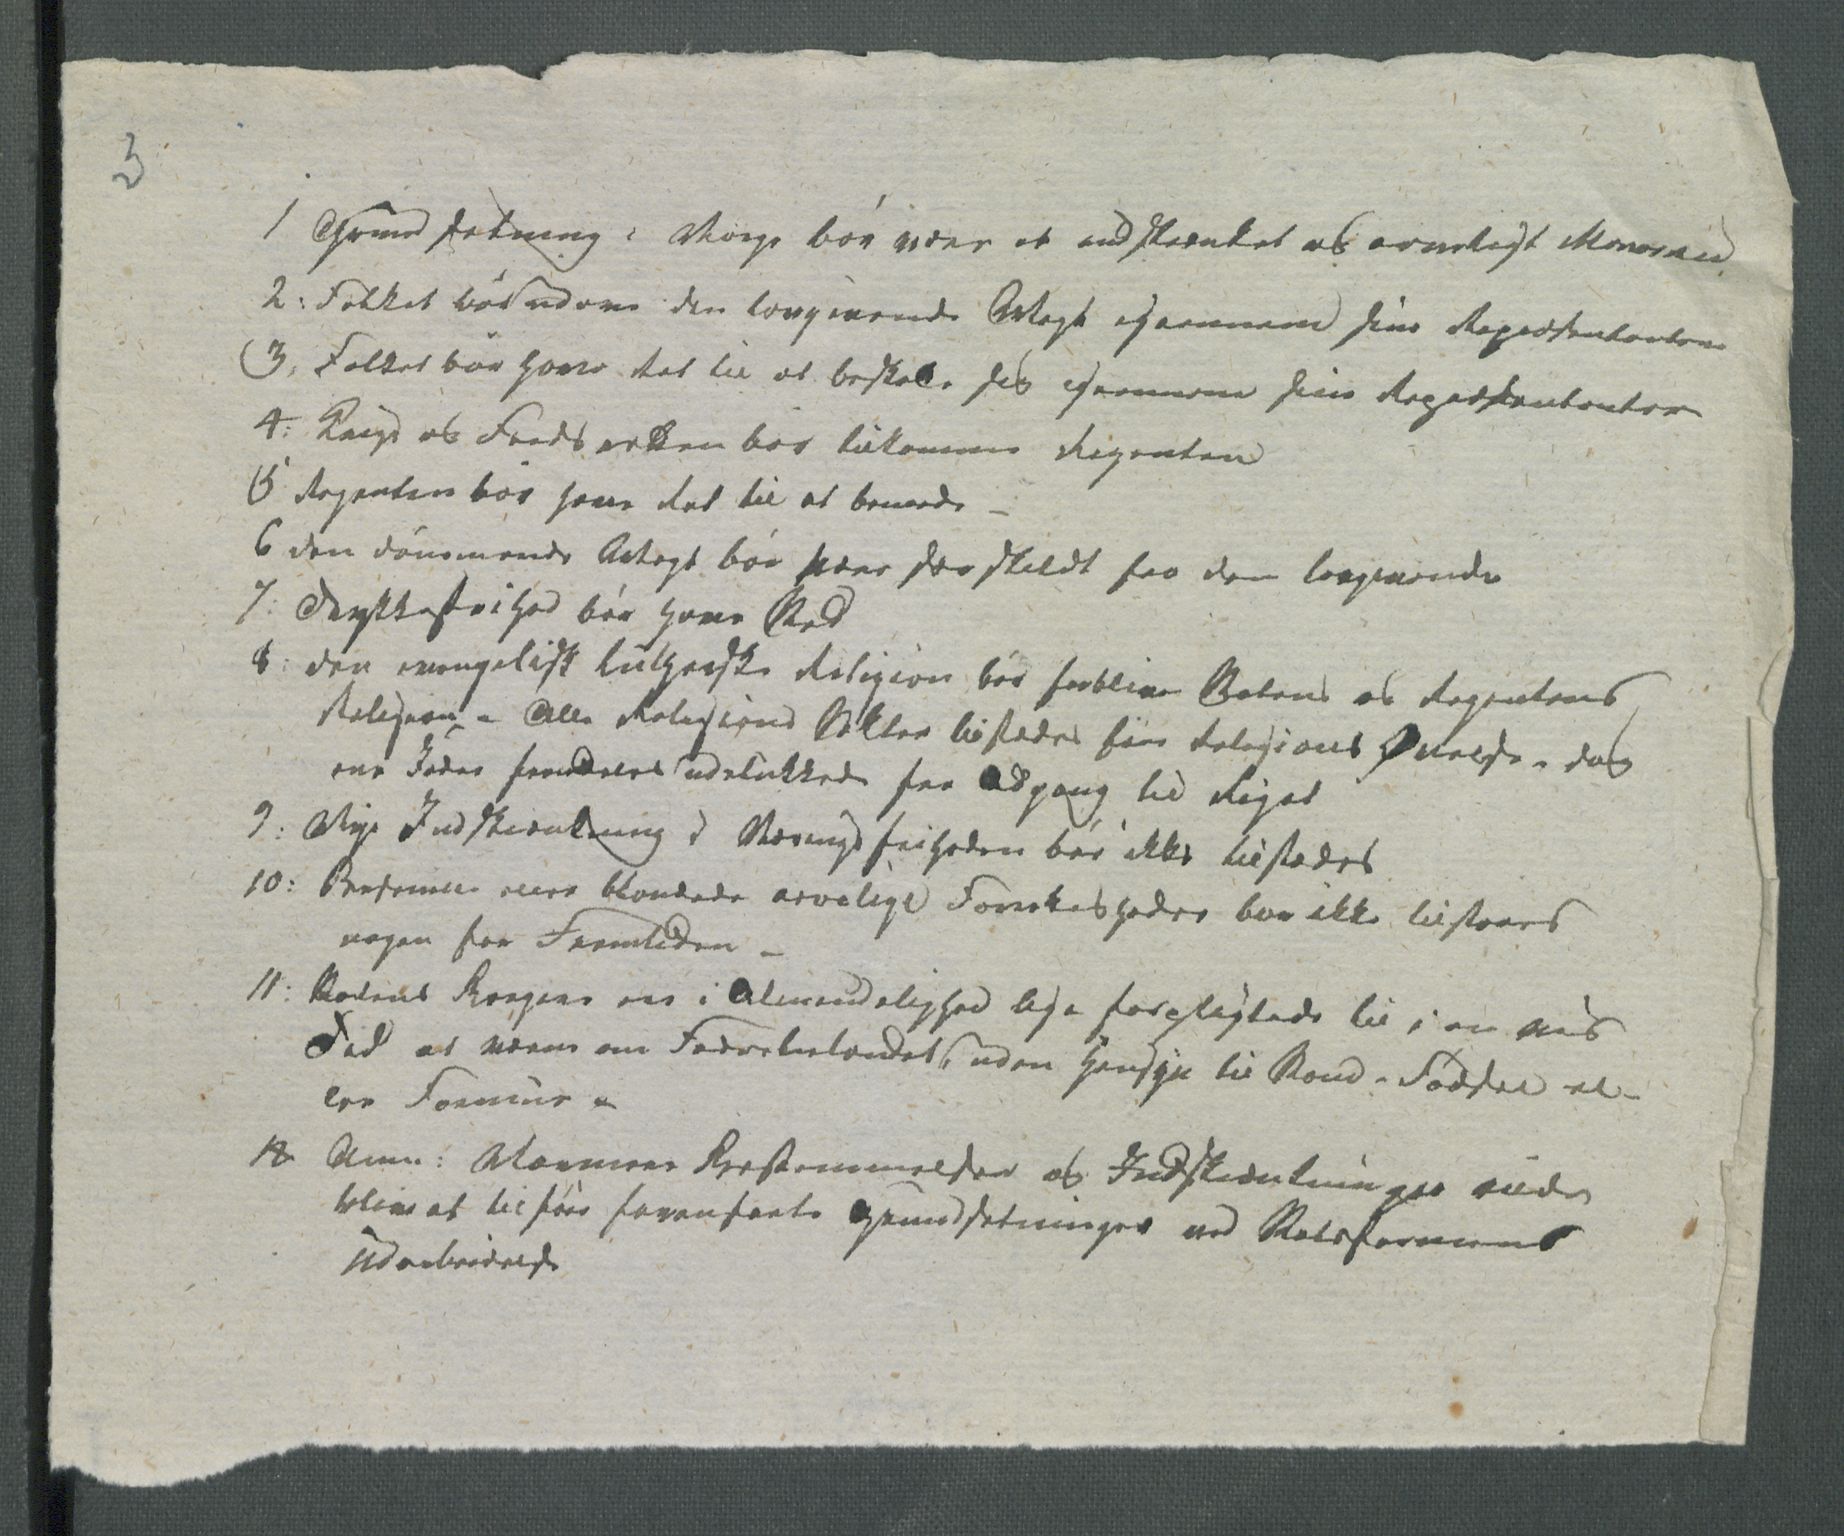 3
1 Grundsetning: Norge bör være et indskrænket og arveligt Monarkie
2: Folket bör udøve den lovgivende Magt igiennem sine Repræsentantere
3, Folket bör have Ret til at beskatte sig igiennem sine Repræsentanter
4: Krigs og Freds retten bör tilkomme Regenten
5 Regenten bör have Ret til at benaade –
6 den dömmende Magt bör være særskildt fra den lovgivende
7: Trykkefrihed bör have Sted
8: den evangelisk lutherske Religion bör forblive Statens og Regentens
Religion – Alle Religions Sekter tilstædes frie Religions Øvelse – dog
ere Jöder fremdeles udelukkede fra Adgang til Riget
9: Nye Indskrænkning i Næringsfriheden bör ikke tilstædes
10: Personelle eller blandede arvelige Forrettigheder bör ikke tilstaaes
nogen for Fremtiden –
11: Statens Borgere ere i Almindelighed lige forpligtede til i en vis
Tid at værne om Fædrelandet, uden Hensyn til Stand – Fødsel el-
ler Formue –
12 Anm: Nærmere Bestemmelser og Indskrænkninger ville
blive at tilföie foranførte Grundsetninger ved Statsformens
Udarbeidelse